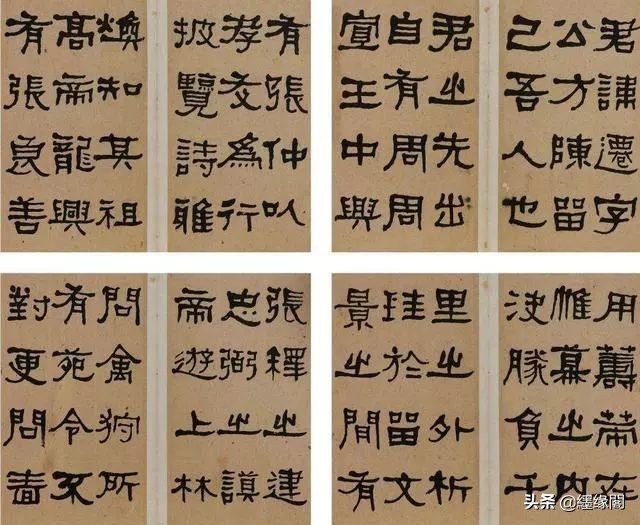 君諱遷字
公方陳留
己吾人也
君之先出
自有周周
宣王中興
有張仲以
孝友為行
披覽詩雅
煥知其祖
高帝龍興
有張良善
用籌策在
帷幕之內
決勝負千
里之外析
珪於留文
景之間有
張釋之建
忠弼之謨
帝遊上林
問禽狩所
有苑令不
對更問嗇
头条 @纆缘閣